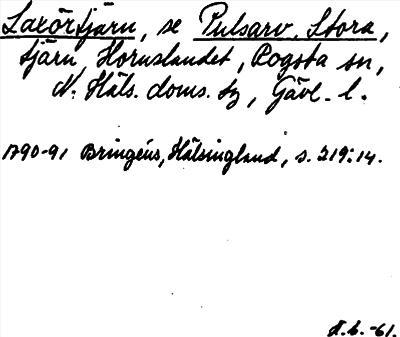 Laxörtjärn, se Pulsarv, Stora,
tjärn, Hornslandet, Rogsta sn,
N. Häls. doms. tz, Gävl. l.
1790-91 Bringéus, Hälsingland, s. 219:14.
-61.